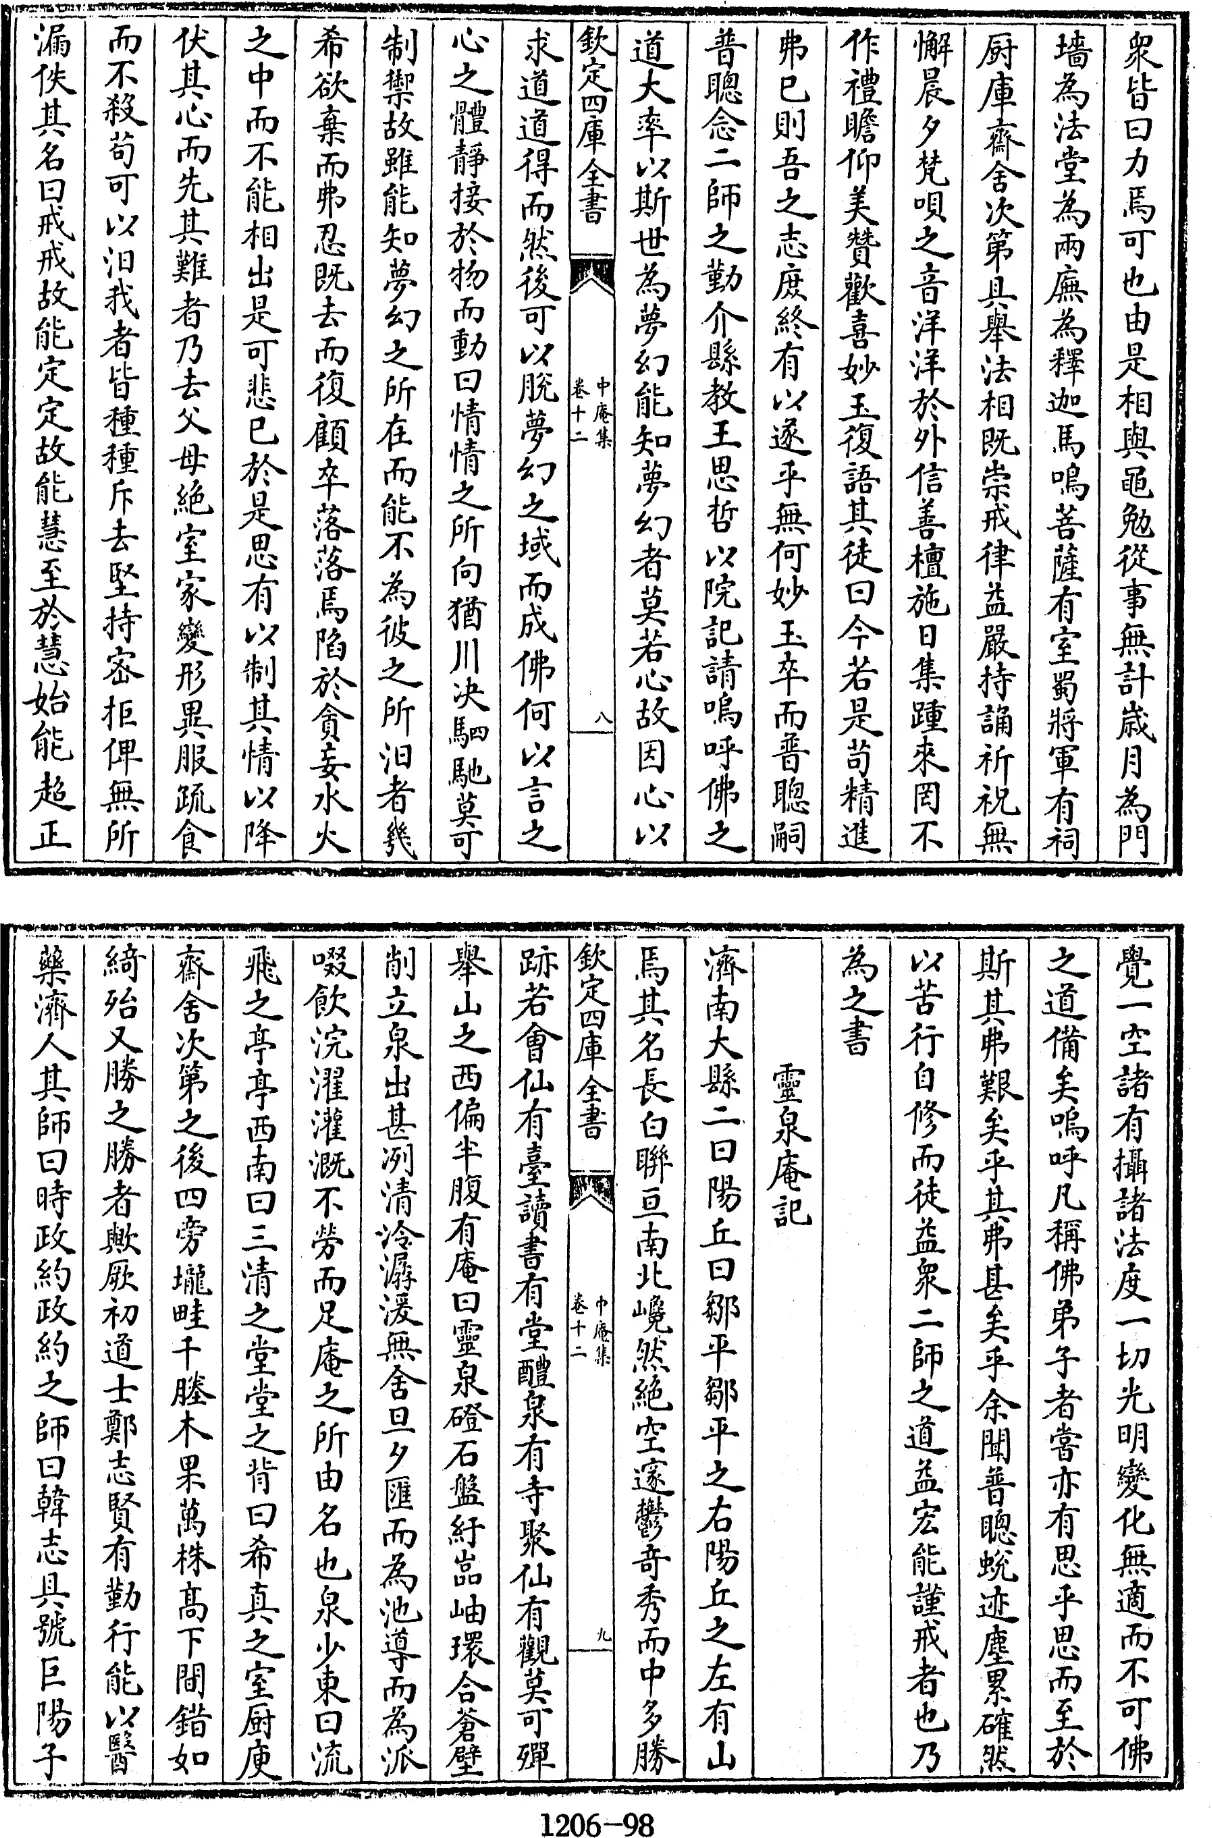 衆皆曰力焉可也由是相與黽勉從事無計歲月為門
墻為法堂為兩廡為釋迦馬鳴菩薩有室蜀將軍有祠
厨庫齋舍次第具舉法相既崇戒律益嚴持誦祈祝無
懈晨夕梵唄之音洋洋於外信善檀施日集踵來罔不
作禮瞻仰美贊歡喜妙玉復語其徒曰今若是苟精進
弗已則吾之志庶終有以遂乎無何妙玉卒而普聰嗣
普聰念二師之勤介縣教王思哲以院記請嗚呼佛之
道大率以斯世為夢幻能知夢幻者莫若心故因心以
欽定四庫全書
中庵集
卷十二
八
求道道得而然後可以脫夢幻之域而成佛何以言之
心之體靜接於物而動曰情情之所向猶川决駟馳莫可
制禦故雖能知夢幻之所在而能不為彼之所汨者幾
希欲棄而弗忍既去而復顧卒落落焉陷於貪妄水火
之中而不能相出是可悲已於是思有以制其情以降
伏其心而先其難者乃去父母絶室家變形異服疏食
而不殺苟可以汨我者皆種種斥去堅持宻拒俾無所
漏佚其名曰戒戒故能定定故能慧至於慧始能超正
覺一空諸有攝諸法度一切光明變化無適而不可佛
之道備矣嗚呼凡稱佛弟子者嘗亦有思乎思而至於
斯其弗艱矣乎其弗甚矣乎余聞普聰蛻迹塵累確然
以苦行自修而徒益衆二師之道益宏能謹戒者也乃
為之書
靈泉庵記
濟南大縣二曰陽丘曰鄒平鄒平之右陽丘之左有山
焉其名長白聯亘南北巉然絶空邃鬱奇秀而中多勝
欽定四庫全書
中庵集
卷十二
九
跡若會仙有臺讀書有堂醴泉有寺聚仙有觀莫可殫
舉山之西偏半腹有庵曰靈泉磴石盤紆嵓岫環合蒼壁
削立泉出甚冽清泠潺湲無舍旦夕匯而為池導而為派
啜飲浣濯灌溉不勞而足庵之所由名也泉少東曰流
飛之亭亭西南曰三清之堂堂之背曰希真之室厨庾
齋舍次第之後四旁壠畦千塍木果萬株髙下間錯如
綺殆又勝之勝者歟厥初道士鄭志賢有勤行能以醫
藥濟人其師曰時政約政約之師曰韓志具號巨陽子
1206-98